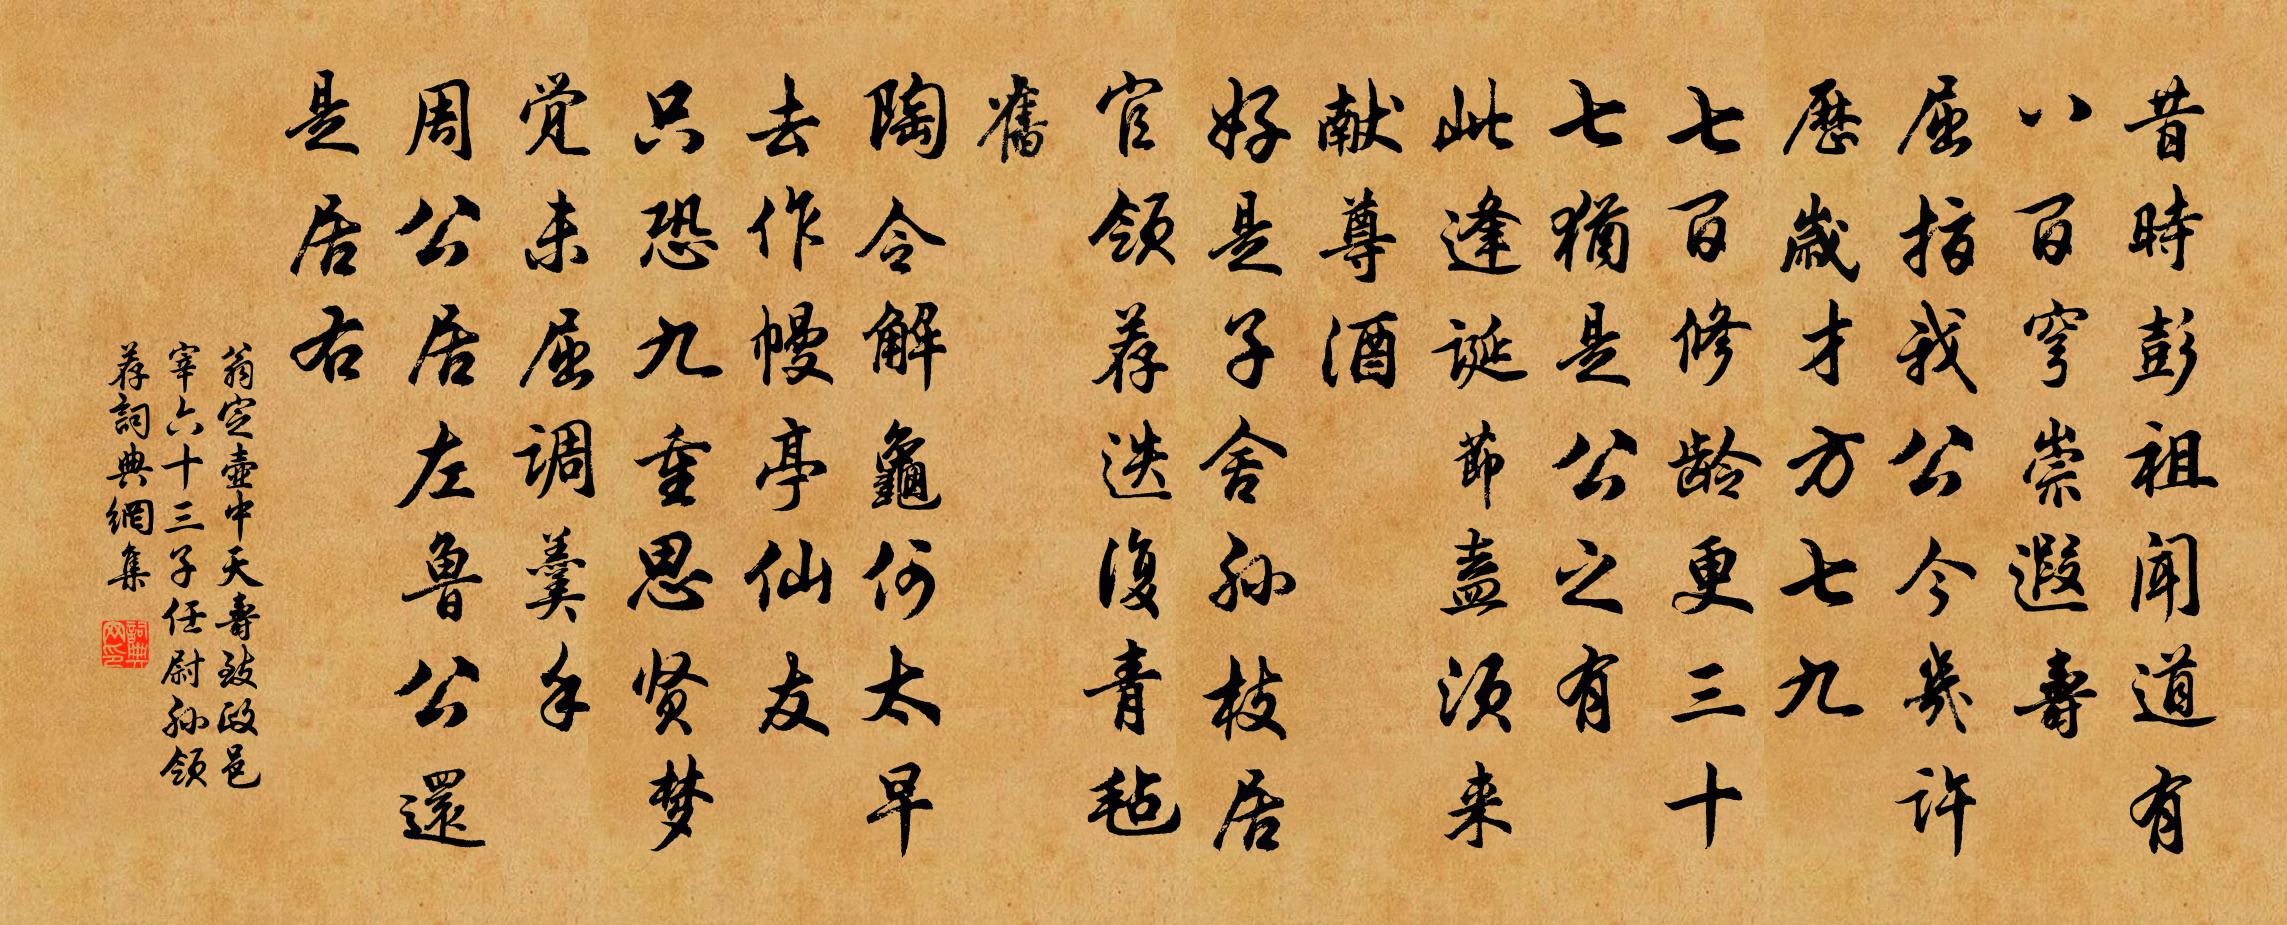 昔時彭祖聞道有
八百穹崇遐壽
屈指我公今幾許
歷歲才方七九
七百修龄更三十
七猶是公之有
此逢诞節盍須来
献尊酒
好是子舍孙枝居
官領荐迭復青毡
舊
陶令解龜何太早
去作幔亭仙友
只恐九重思贤梦
觉未屈調羹手
周公居左魯公還
是居右
翁定壷中天壽致政邑
宰六十三子任尉孙領
荐詞典網集
詞典网印